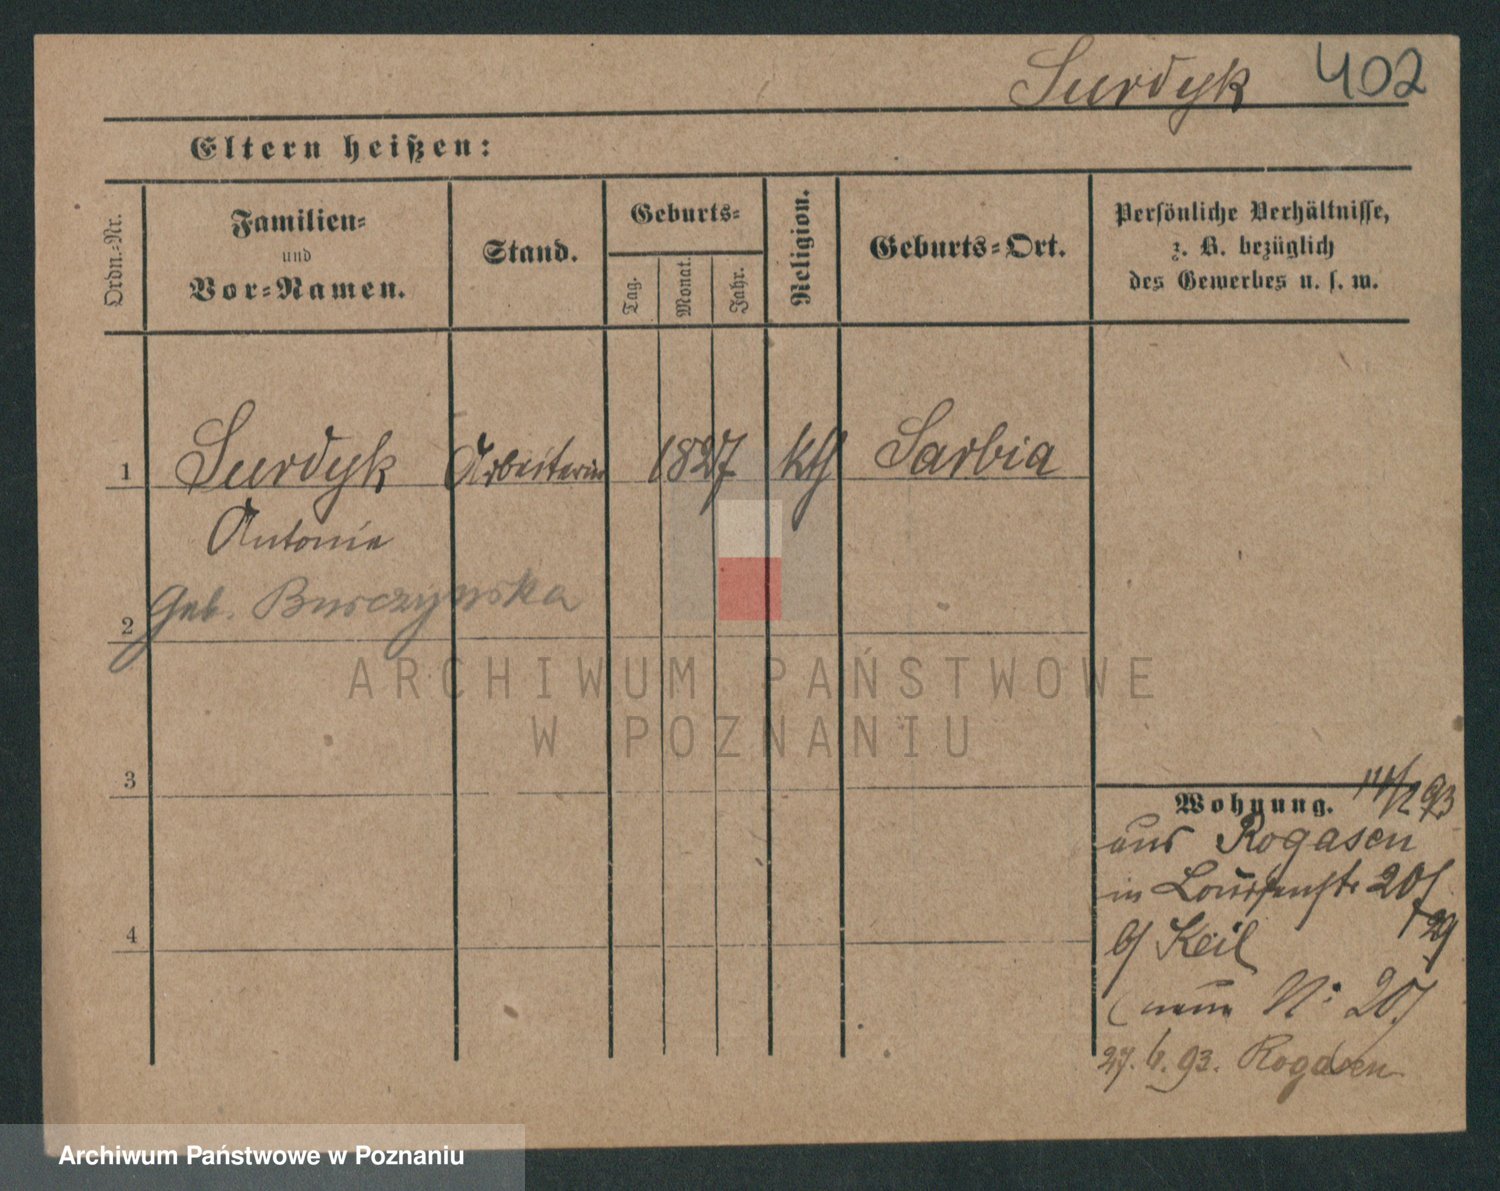 Surdyk 402
Eltern heißen:
Ordn.-Nr.
Familien-
und
Vor-Namen.
Stand.
Geburts-
Tag.
Monat.
Jahr.
Religion.
Geburts-Ort.
Persönliche Verhältnisse,
z. B. bezüglich
des Gewerbes u. s. w.
1 Surdyk Arbeiterin 1827 kth Sarbia
Antonie
2 geb. Burczynska
3
4
Wohnung. 14/2 93
aus Rogasen
in Louisenstr 20/
29
b/ Keil
(neue N: 20)
27. 6. 93. Rogasen
ARCHIWUM PAŃSTWOWE
W POZNANIU
Archiwum Państwowe w Poznaniu